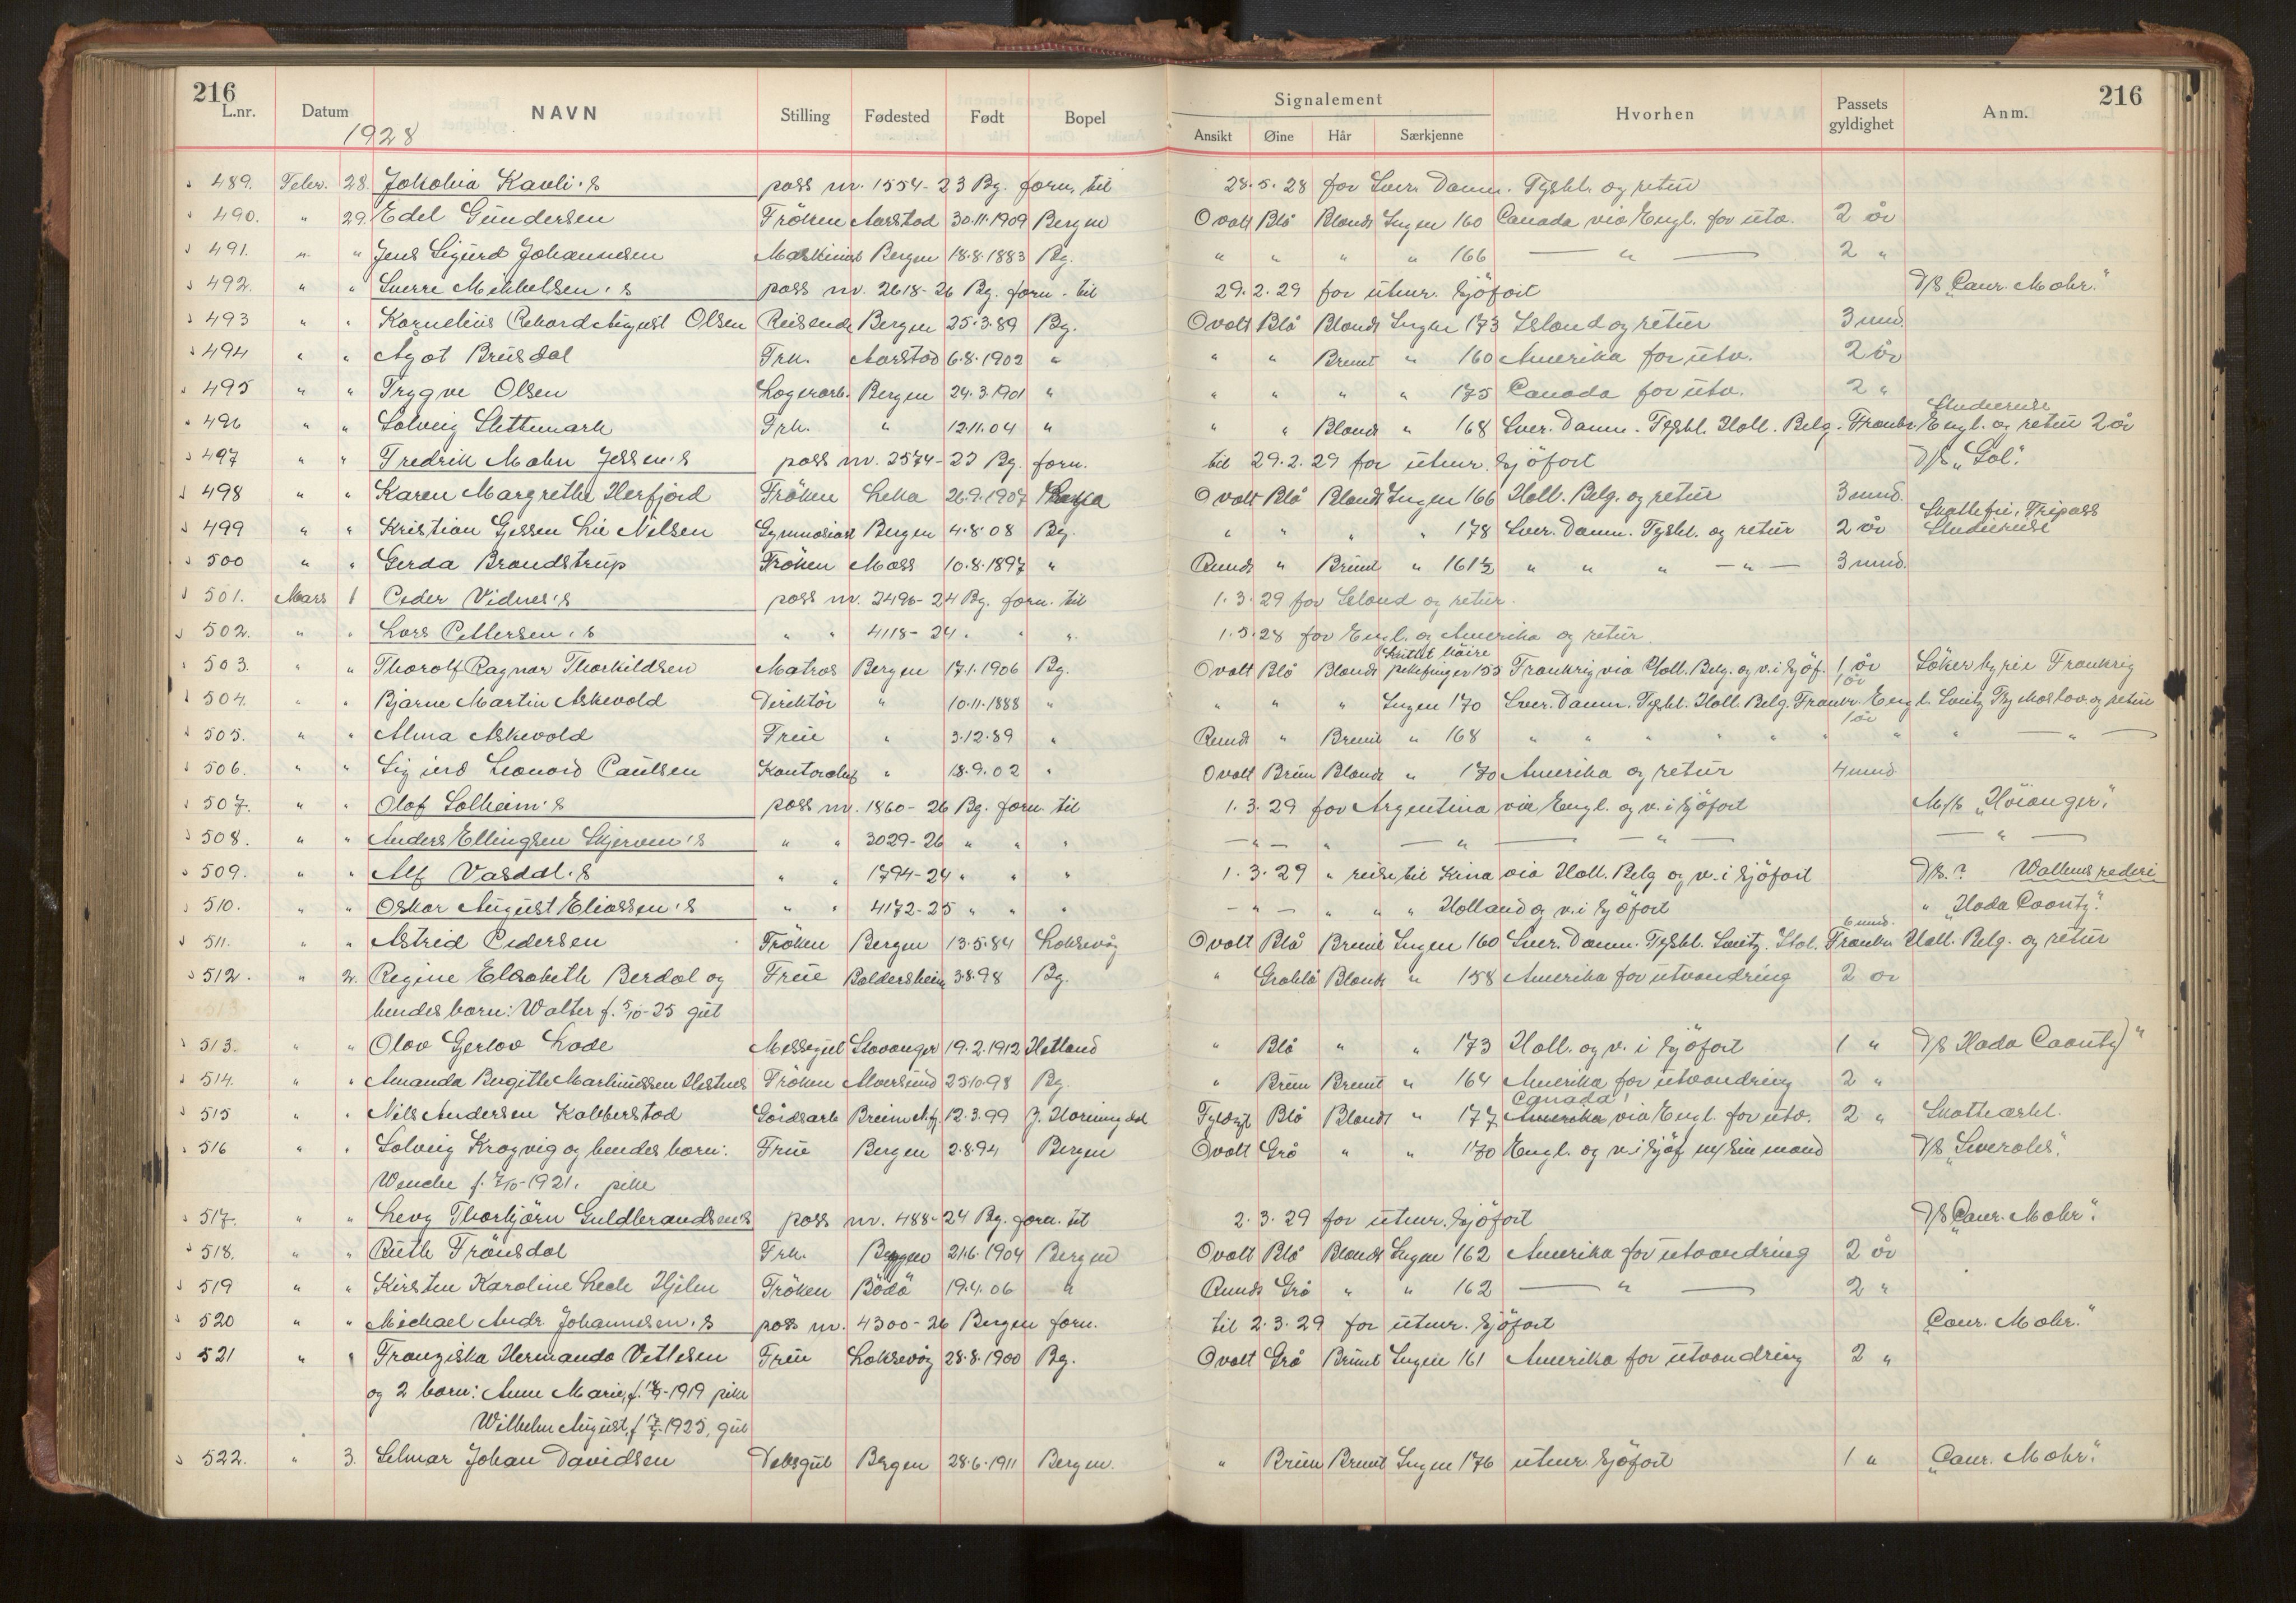 216 216
L.nr. Datum NAVN Stilling Fødested Født Bopel Signalement Hvorhen Passets gyldighet Anm.
Ansikt Øine Hår Særkjenne
1928
489. Febr. 28. Kavli's pass nr. 1554-23 Bg. forn. til 28.5.28 for Sver. Danm. Tyskl. og retur
490. " 29. Edel Gundersen Frøken Aarstad 30.11.1909 Bergen Ovalt Blå Blondt Ingen 160 Canada via Engl. for utv. 2 år
491. " " Jens Sigurd Johannesen Maskinist Bergen 18.8.1883 Bg. " " " " 166 — " — 2 "
492. " " Sverre Mikkelsen's pass nr. 2618-26 Bg. forn. til 29.2.29 for utenr. sjöfart D/S "Conr. Mohr."
493 " " Kornelius Rekard August Olsen Reisende Bergen 25.3.89 Bg. Ovalt Blå Blondt Ingen 173 Island og retur 3 mnd.
494 " " Agot Brusdal Frk. Aarstad 6.8.1902 " " " Brunt " 160 Amerika for utv. 2 år
495 " " Trygve Olsen Lagerarb. Bergen 24.3.1901 " " " " " 175 Canada for utv. 2 "
496 " " Solveig Slettemark Frk. " 12.11.04 " " " Blondt " 168 Sver. Danm. Tyskl. Holl. Belg. Frankr. Engl. og retur 2 år Studiereise
497 " " Fredrik Mohn Jessen's pass nr. 3574-23 Bg. forn. til 29.2.29 for utenr. sjöfart D/S "Gol".
498 " " Karen Margrethe Herfjord Frøken Leka 26.9.1907 Ovalt Blå Blondt Ingen 166 Holl. Belg. og retur 3 mnd.
499 " " Kristian Gjessen Lie Nilsen Gymnasiast Bergen 4.8.08 Bg. " " " " 178 Sver. Danm. Tyskl. og retur 2 år Skattefri, Fripass Studiereise
500 " " Gerda Brandstrup Frøken Moss 10.8.1897 " Rundt " Brunt " 161½ " " " — " — 3 mnd.
501. Mars 1 Peder Vidnes's pass nr. 3496-24 Bg. forn. til 1.3.29 for Island og retur.
502. " " Lars Pettersen's " " 4118-24 " " " 1.5.28 for Engl. og Amerika og retur.
503. " " Thorolf Ragnar Thorkildsen Matros Bergen 17.1.1906 Bg. Ovalt Blå Blondt høire pekefinger 155 Frankrig via Holl. Belg. og v. i sjöf. 1 år Söker hyre i Frankrig
504. " " Bjarne Martin Askevold Direktör " 10.11.1888 " " " " Ingen 170 Sver. Danm. Tyskl. Holl. Belg. Frankr. Engl. Sveitz Tsjekoslov. og retur 1 år
505. " " Alma Askevold Frue " 3.12.89 " Rundt " Brunt " 168 " " " " " " " " — " — 1 år
506. " " Sigurd Leonard Paulsen Kontorchef " 18.9.02 " Ovalt Brun Blondt " 170 Amerika og retur 4 mnd
507. " " Olaf Solheim's pass nr. 1860-26 Bg. forn. til 1.3.29 for Argentina via Engl. og v. i sjöfart M/S "Höianger".
508. " " Anders Ellingsen Skjerven's " " 3029-26 " " " — " — " — " — " — — " —
509. " " Alf Vasdal's " " 1794-24 " " " 1.3.29 " reise til Kina via Holl. Belg og v. i sjöfart D/S. ? Wallems rederi
510. " " Oskar August Eliassen's " " 4172-25 " " " — " — " " " Holland og v. i sjöfart " "Hada Coonty".
511. " " Astrid Pedersen Frøken Bergen 13.5.84 Laksevåg Ovalt Blå Brunt Ingen 160 Sver. Danm. Tyskl. Sveitz. Ital. Frankr. Holl. Belg. og retur 6 mnd.
512. " 2. Regine Elisabeth Berdal og Frue Baldersheim 3.8.98 Bg. " Gråblå Blondt " 158 Amerika for utvandring 2 år
hendes barn: Walter f. 5/10-25 gut
513. " " Olav Gerlov Lode Messegut Stavanger 19.2.1912 Hetland " Blå " " 173 Holl. og v. i sjöfart 1 " D/S Hada Coonty)"
514. " " Amanda Bergitte Martinussen Hestnes Frøken Alversund 25.10.98 Bg. " Brun Brunt " 164 Amerika for utvandring 2 "
515 " " Nils Andersen Kalberstad Gårdsarb Breim N.fj. 12.3.99 Fyldigt Blå Blondt " 177 Canada! Amerika via Engl. for utv. 2 " Skatteattest.
516 " " Solveig Krogvig og hendes barn: Frue Bergen 2.8.94 Bergen Ovalt Grå " " 170 Engl. og v. i sjöf m/ sin mand D/S "Sverolis".
Wenche f. 7/10-1921. pike
517. " " Levy Thorbjörn Guldbrandsen's pass nr. 488-24 Bg. forn. til 2.3.29 for utenr. sjöfart D/S "Conr. Mohr".
518. " " Ruth Frönsdal Frk. Bergen 21.6.1904 Bergen Ovalt Blå Blondt Ingen 162 Amerika for utvandring 2 år
519 " " Kirsten Karoline Lech Hjelm Frøken Bodö 19.4.06 " Rundt Grå " " 162 — " — 2 "
520 " " Michael Andr. Johannesen's pass nr. 4300-26 Bergen forn. til 2.3.29 for utenr. sjöfart "Conr. Mohr."
521 " " Franziska Hermanda Vetlesen Frue Laksevåg 28.8.1900 Bg. Ovalt Grå Brunt Ingen 161 Amerika for utvandring 2 "
og 2 barn: Anne Marie, f. -1919 pike
Wilhelm August, f. 1925, gut
522. " 3. Selmar Johan Davidsen Deksgut Bergen 28.6.1911 Bergen. " Brun Brunt Ingen 176 utenr. sjöfart 1 " "Conr. Mohr".